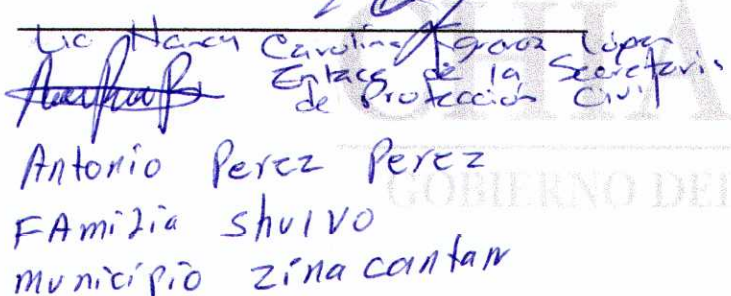 Lic Nancy Carolina López
Enlace de la Secretaria
de Protección Civil
Antonio Perez Perez
FAmilia shuivo
municipio zinacantan
CHIA
GOBIERNO DEL